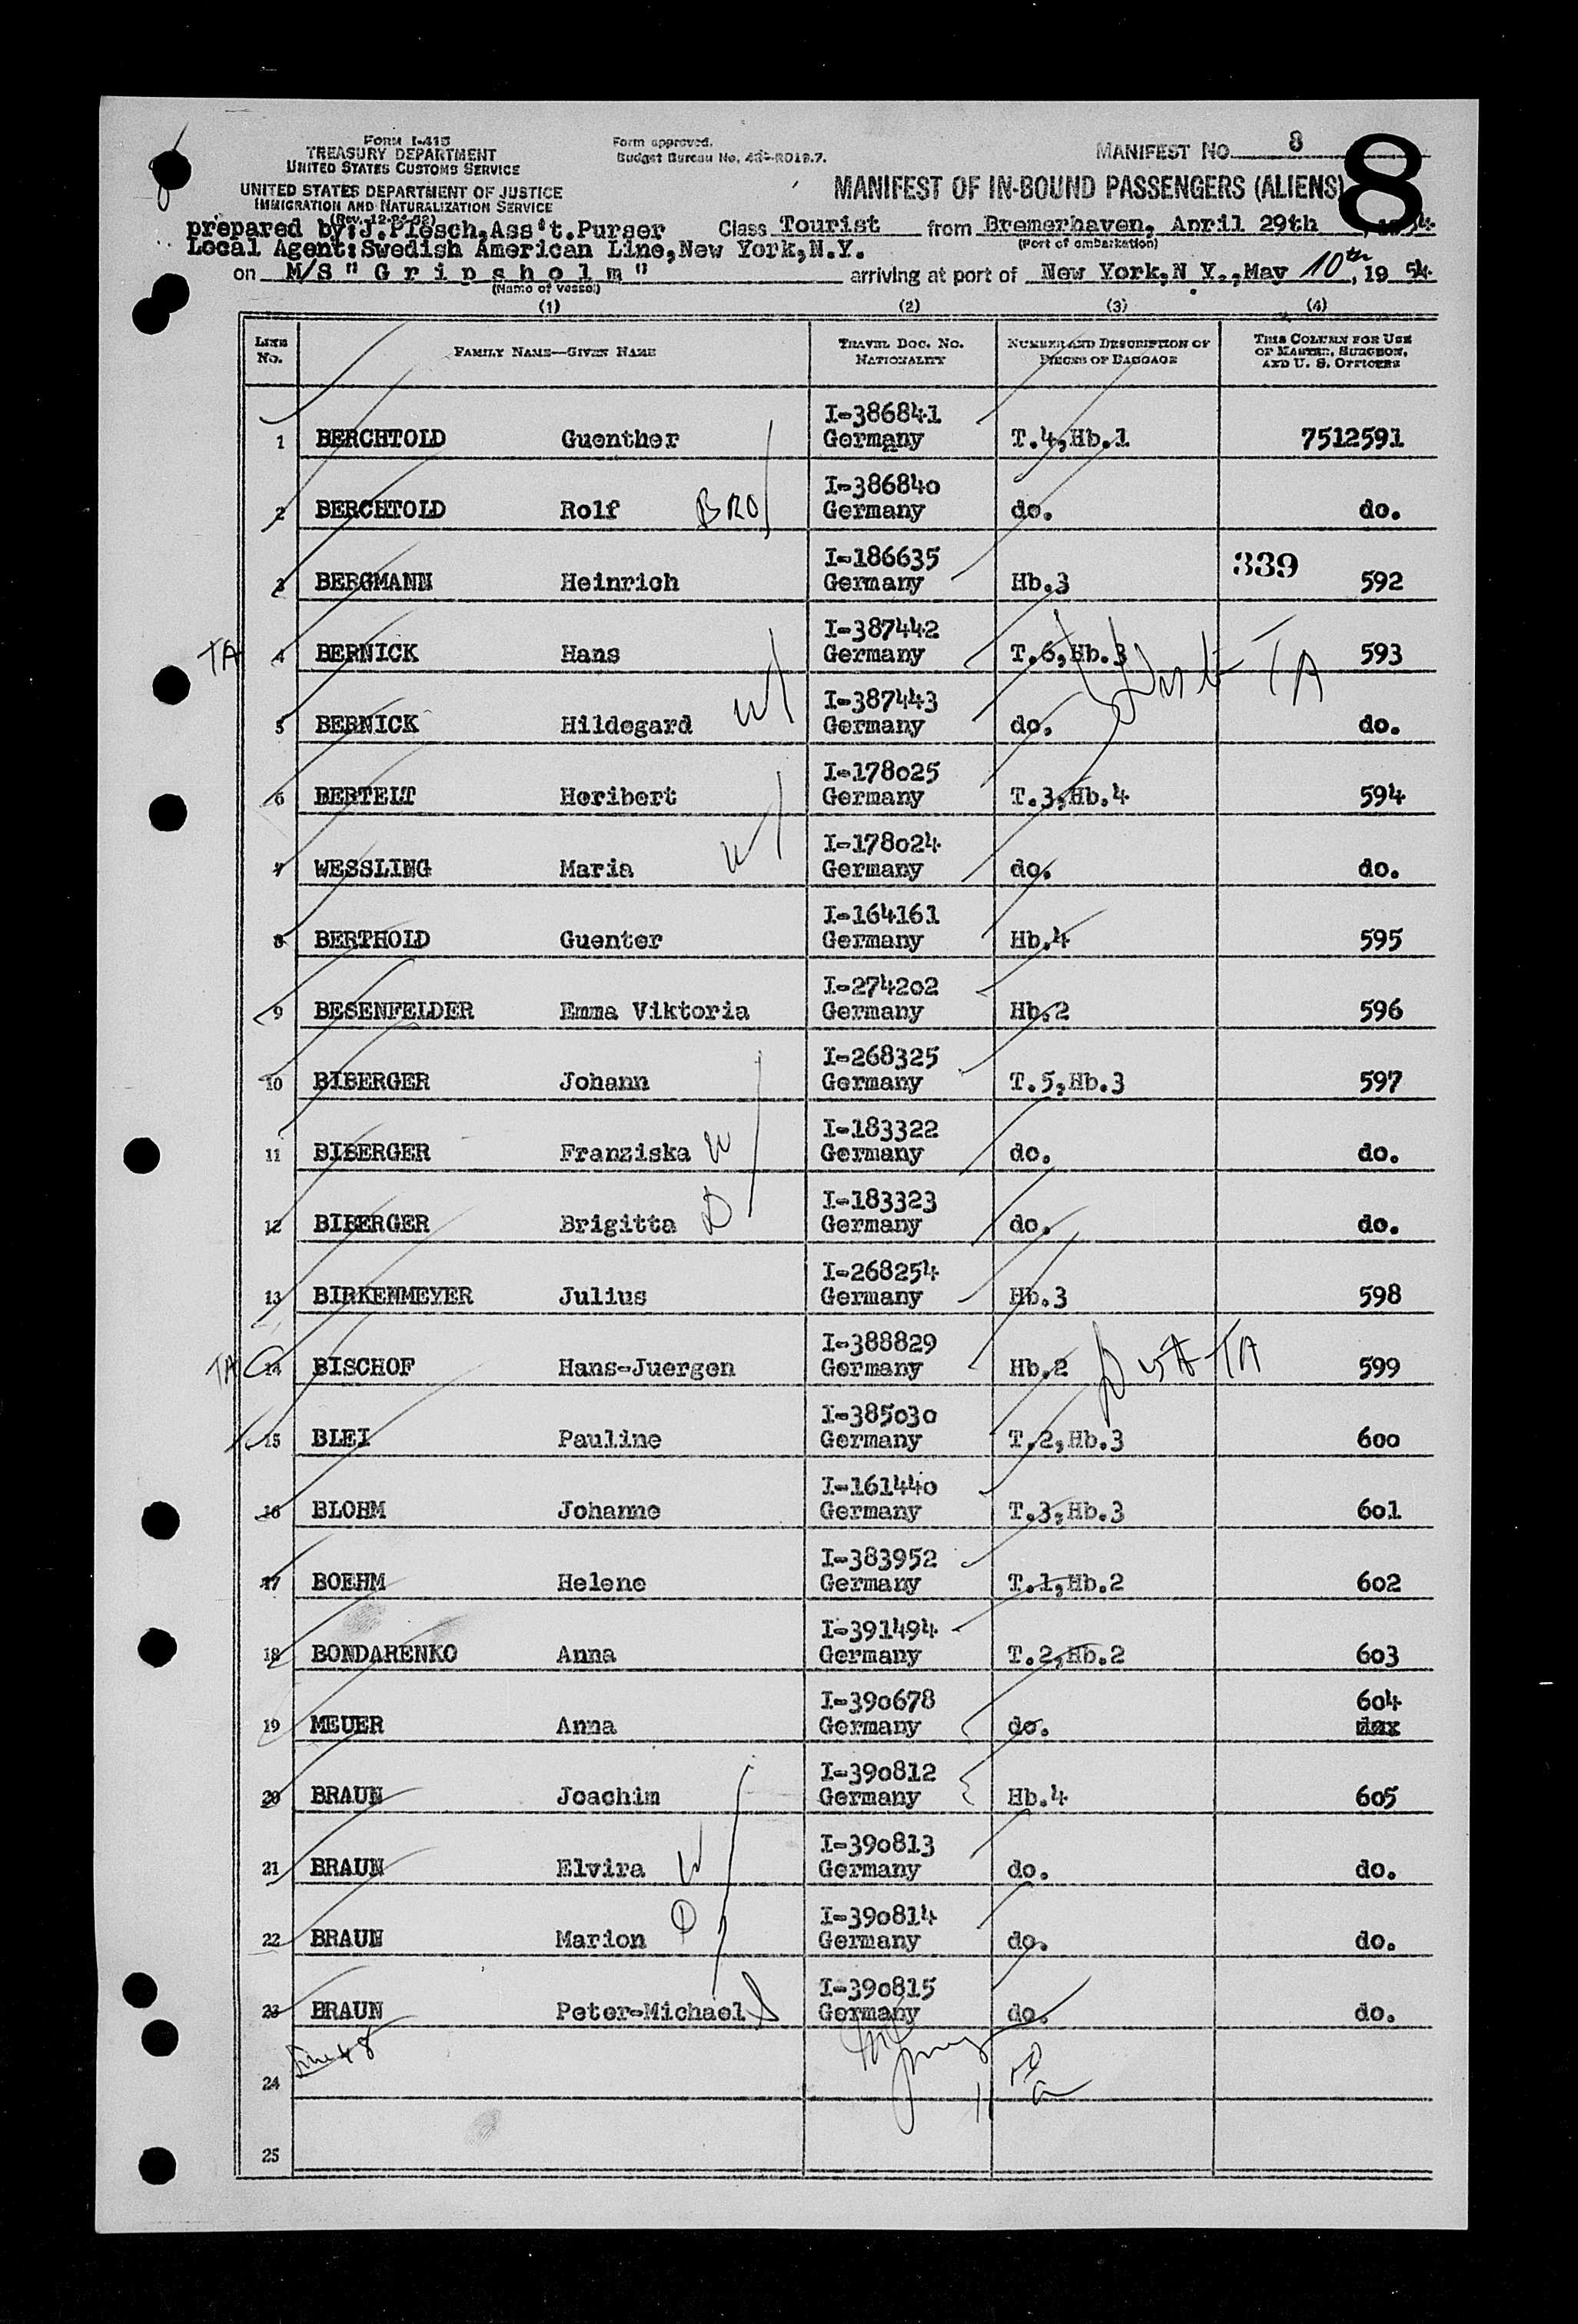 FORM I-415
TREASURY DEPARTMENT
UNITED STATES CUSTOMS SERVICE
UNITED STATES DEPARTMENT OF JUSTICE
IMMIGRATION AND NATURALIZATION SERVICE
Form approved.
MANIFEST NO. 8
8
MANIFEST OF IN-BOUND PASSENGERS (ALIENS)
prepared by: J.Plesch, Ass't.Purser Class Tourist from Bremerhaven, April 29th, 1954
Local Agent: Swedish American Line, New York, N.Y. (Port of embarkation)
on M/S " G r i p s h o l m " arriving at port of New York, N Y., May 10th, 19 54.
(Name of vessel)
(1) (2) (3) (4)
LINE NO. FAMILY NAME—GIVEN NAME TRAVEL DOC. NO. NATIONALITY NUMBER AND DESCRIPTION OF PIECES OF BAGGAGE THIS COLUMN FOR USE OF MASTER, SURGEON, AND U. S. OFFICERS
I-386841
1 BERCHTOLD Guenther Germany T.4,Hb.1 7512591
I-386840
2 BERCHTOLD Rolf BRO Germany do. do.
I-186635 339
3 BERGMANN Heinrich Germany Hb.3 592
I-387442
TA 4 BERNICK Hans Germany T.6,Hb.3 TA 593
I-387443
5 BERNICK Hildegard W Germany do. do.
I-178025
6 BERTELT Heribert Germany T.3,Hb.4 594
I-178024
7 WESSLING Maria W Germany do. do.
I-164161
8 BERTHOLD Guenter Germany Hb.4 595
I-274202
9 BESENFELDER Emma Viktoria Germany Hb.2 596
I-268325
10 BIBERGER Johann Germany T.5,Hb.3 597
I-183322
11 BIBERGER Franziska W Germany do. do.
I-183323
12 BIBERGER Brigitta D Germany do. do.
I-268254
13 BIRKENMEYER Julius Germany Hb.3 598
I-388829
TA 14 BISCHOF Hans-Juergen Germany Hb.2 TA 599
I-385030
15 BLEI Pauline Germany T.2,Hb.3 600
I-161440
16 BLOHM Johanne Germany T.3,Hb.3 601
I-383952
17 BOEHM Helene Germany T.1,Hb.2 602
I-391494
18 BONDARENKO Anna Germany T.2,Hb.2 603
I-390678 604
19 MEUER Anna Germany do.
I-390812
20 BRAUN Joachim Germany Hb.4 605
I-390813
21 BRAUN Elvira W Germany do. do.
I-390814
22 BRAUN Marion D Germany do. do.
I-390815
23 BRAUN Peter-Michael S Germany do. do.
24
25